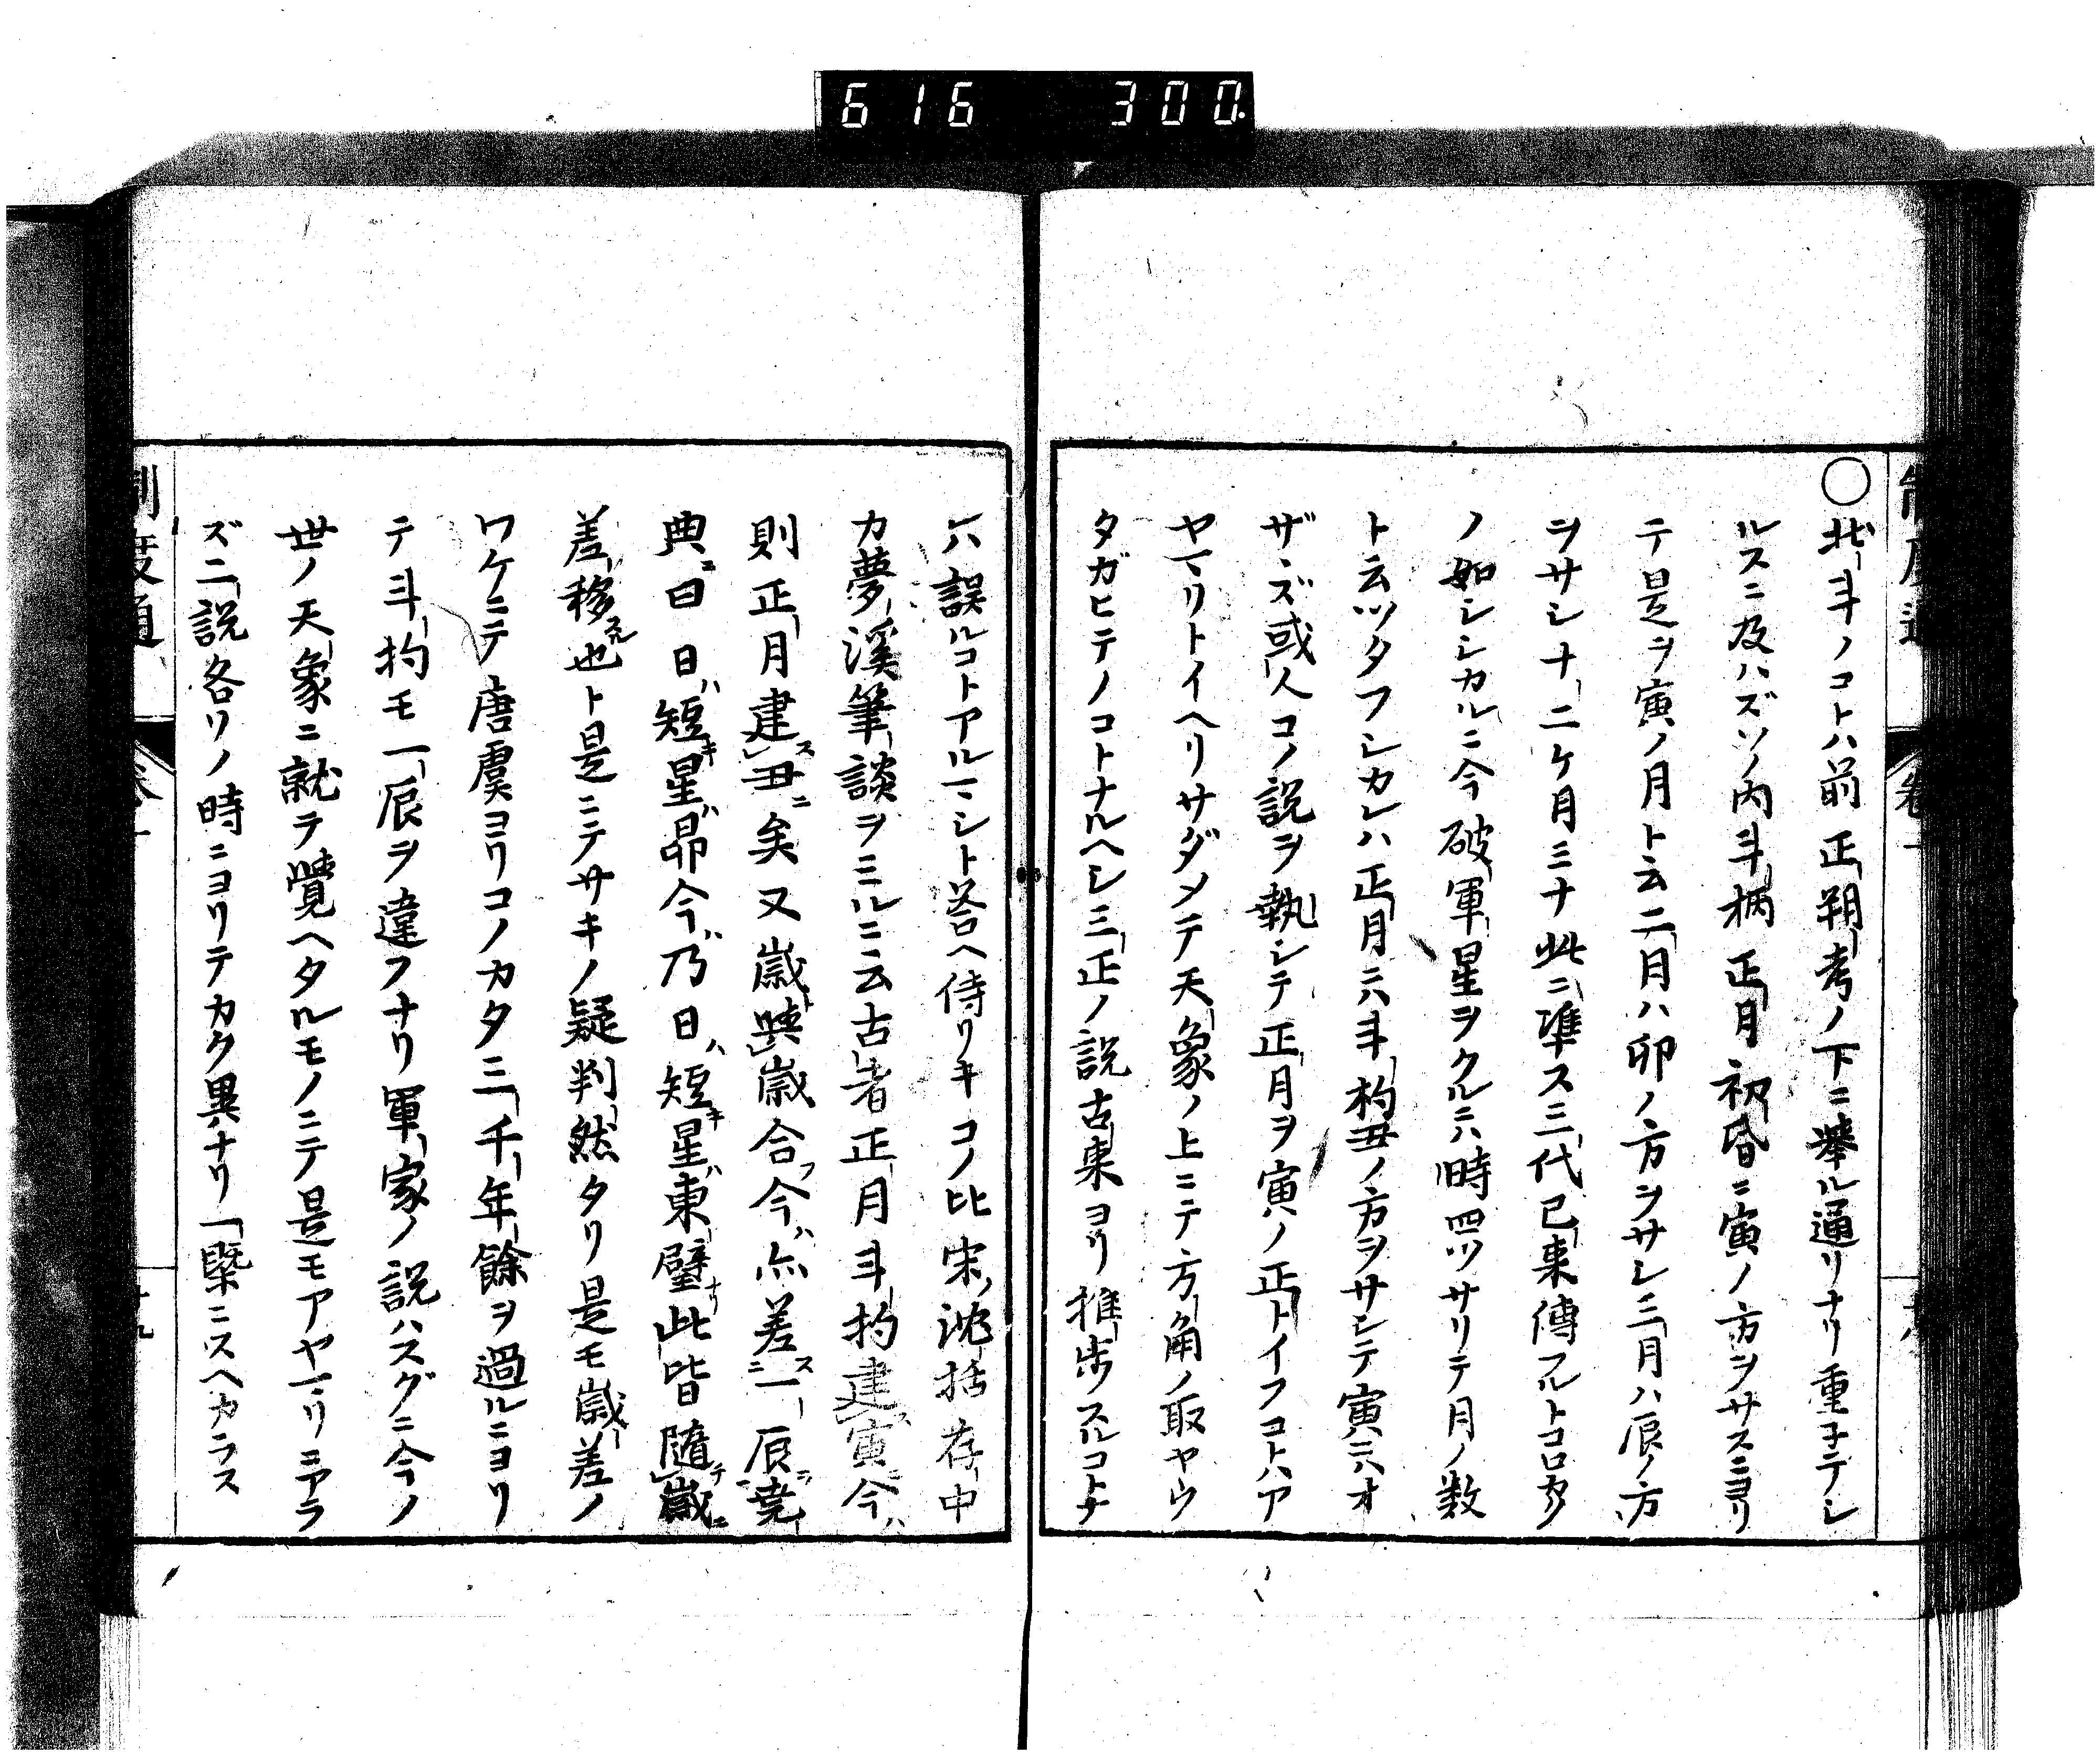 616 300
〇北斗ノコトハ前正朔考ノ下ニ擧ル通リナリ重子テシ
ルスニ及ハズソノ内斗柄正月初昏ニ寅ノ方ヲサスニヨリ
テ是ヲ寅ノ月ト云二月ハ卯ノ方ヲサシ三月ハ辰ノ方
ヲサシ十二ケ月ミナ此ニ準ス三代已来傳フルトコロカク
ノ如シシカルニ今破軍星ヲクルニハ時四ツサリテ月ノ数
ト云ツタフシカレハ正月ニハ斗杓丑ノ方ヲサシテ寅ニハオ
ザヽズ或人コノ説ヲ執シテ正月ヲ寅ノ正トイフコトハア
ヤマリトイヘリサダメテ天象ノ上ニテ方角ノ取ヤウ
タガヒテノコトナルヘシ三正ノ説古来ヨリ推歩スルコトナ
レハ誤ルコトアルマシト荅ヘ侍リキコノ比宋ノ沈括存中
カ夢溪筆談ヲミルニ云古者正月斗杓建寅今ハ
則正月建ス丑ニ矣又歳與歳合フ今ハ亦差スニ一辰ニ堯
典ニ曰日ハ短キ星ハ昴今ハ乃日ハ短キ星ハ東壁ナリ此皆隨テ歳ニ
差移スル也ト是ニテサキノ疑判然タリ是モ歳差ノ
ワケニテ唐虞ヨリコノカタ三千年餘ヲ過ルニヨリ
テ斗杓モ一辰ヲ違フナリ軍家ノ説ハスグニ今ノ
世ノ天象ニ就テ覺ヘタルモノニテ是モアヤマリニアラ
ズ二説各リノ時ニヨリテカク異ナリ一槩ニスヘカラス
制度通